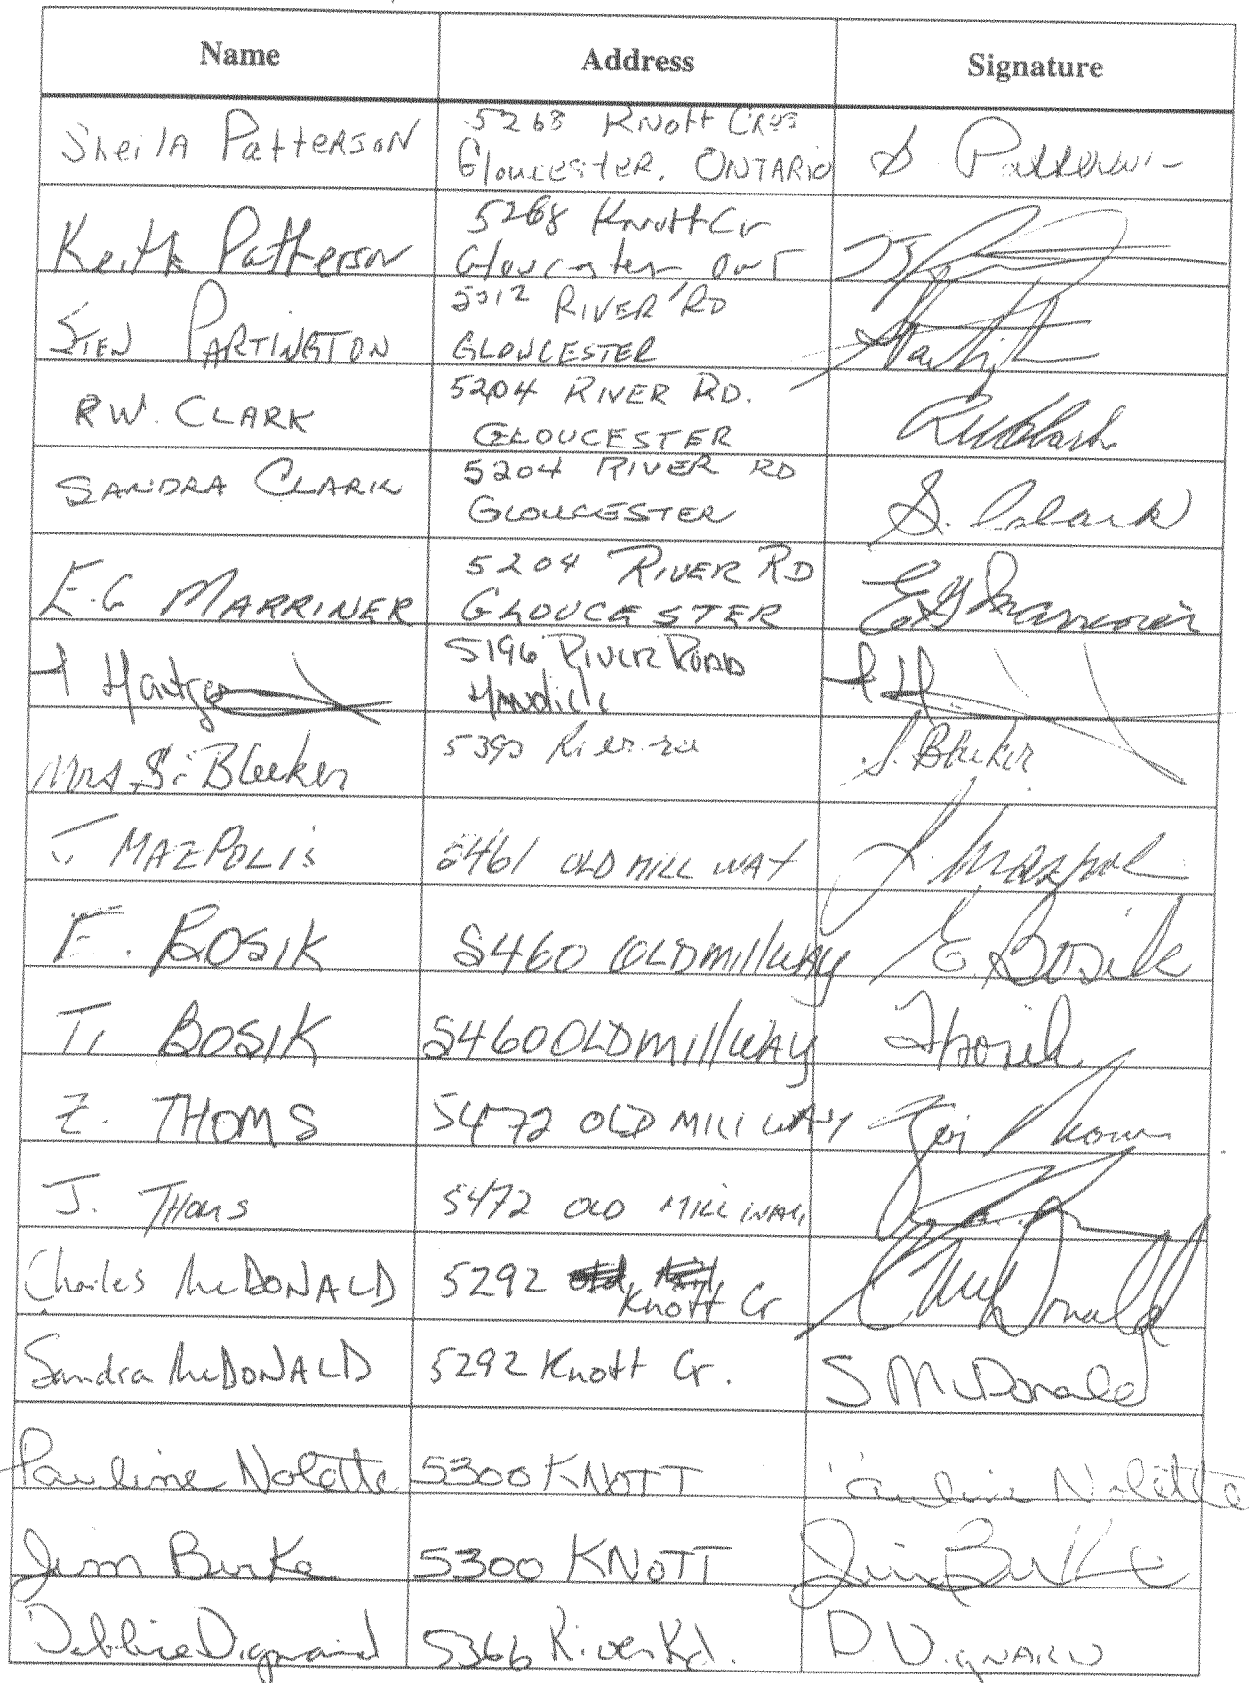 Name Address Signature
Sheila Patterson 5268 Knott Cres
Gloucester, ONTARIO S. Patterson
Keith Patterson 5268 Knott Cr
Gloucester Ont
PARTINGTON 5312 RIVER RD
GLOUCESTER
R.W. CLARK 5204 RIVER RD.
GLOUCESTER RW Clark
SANDRA CLARK 5204 RIVER RD
GLOUCESTER S. Clark
E.G MARRINER 5204 RIVER RD
GLOUCESTER EG Marriner
5196 RIVER ROAD
Mrs S. Bleeker 5390 River rd S. Bleeker
T. MAZPOLIS 5461 OLD MILL WAY
E. BOSIK 5460 OLD Mill WAY E. Bosik
T. BOSIK 5460 OLD Mill WAY T Bosik
Z. THOMS 5472 OLD MILL WAY
J. THOMS 5472 OLD MILL WAY
Charles McDONALD 5292
Knott Cr C McDonald
Sandra McDONALD 5292 Knott Cr. S McDonald
Pauline Nolette 5300 KNOTT Pauline Nolette
Jim Burke 5300 KNOTT Jim Burke
Debbie Vignard 5366 River Rd. D. VIGNARD